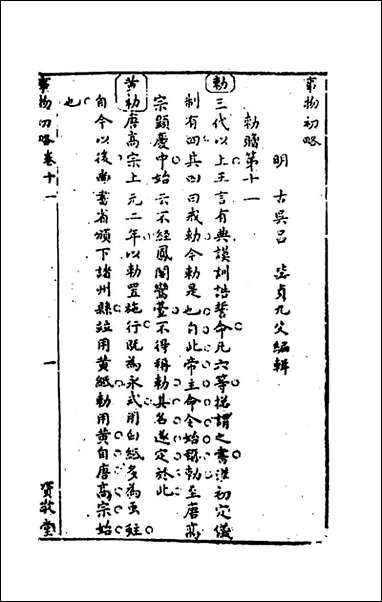 事物初略
明 古吳呂 毖貞九父編輯
勅牘第十一
勅 三代以上王言有典謨訓誥誓命凡六等揔謂之書漢初定儀
制有四其四曰戒勅今勅是也自此帝王命令始稱勅至唐高
宗顯慶中始云不經鳳閣鸞臺不得稱勅其名遂定於此
黃勅 唐高宗上元二年以勅置施行既為永式用白紙多為虫蛀
自今以後尚書省頒下諸州縣竝用黃紙勅用黃自唐高宗始
也
事物初略卷十一
一
寶敦堂